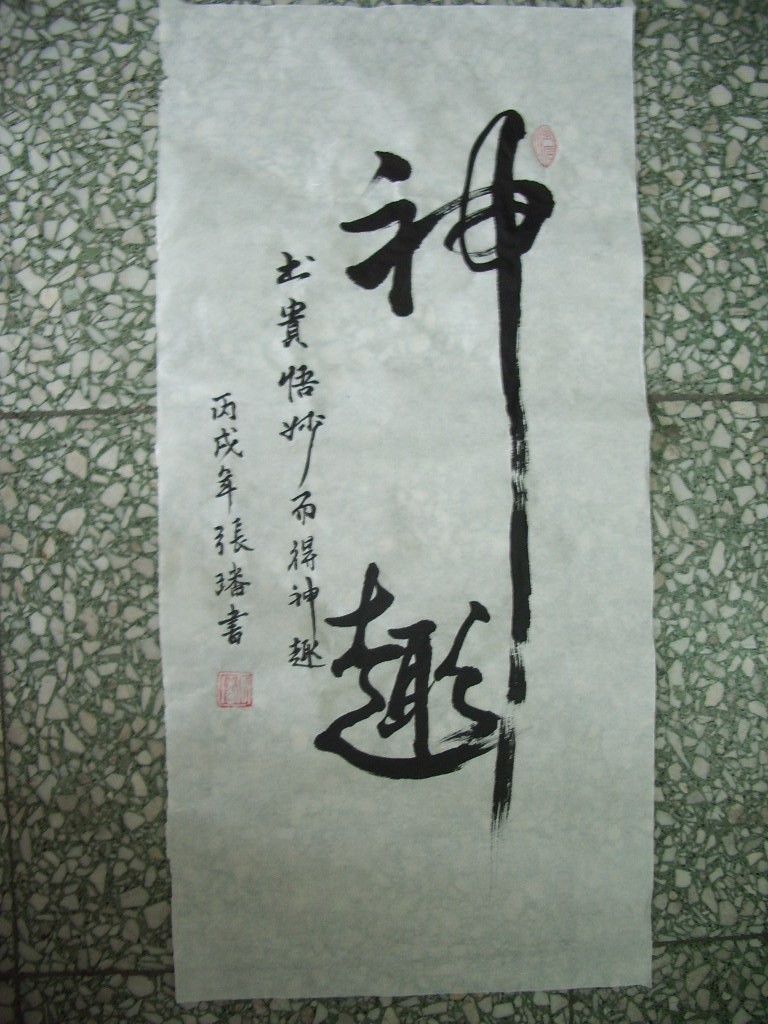 神趣
书貴悟妙而得神趣
丙戌年張璠書